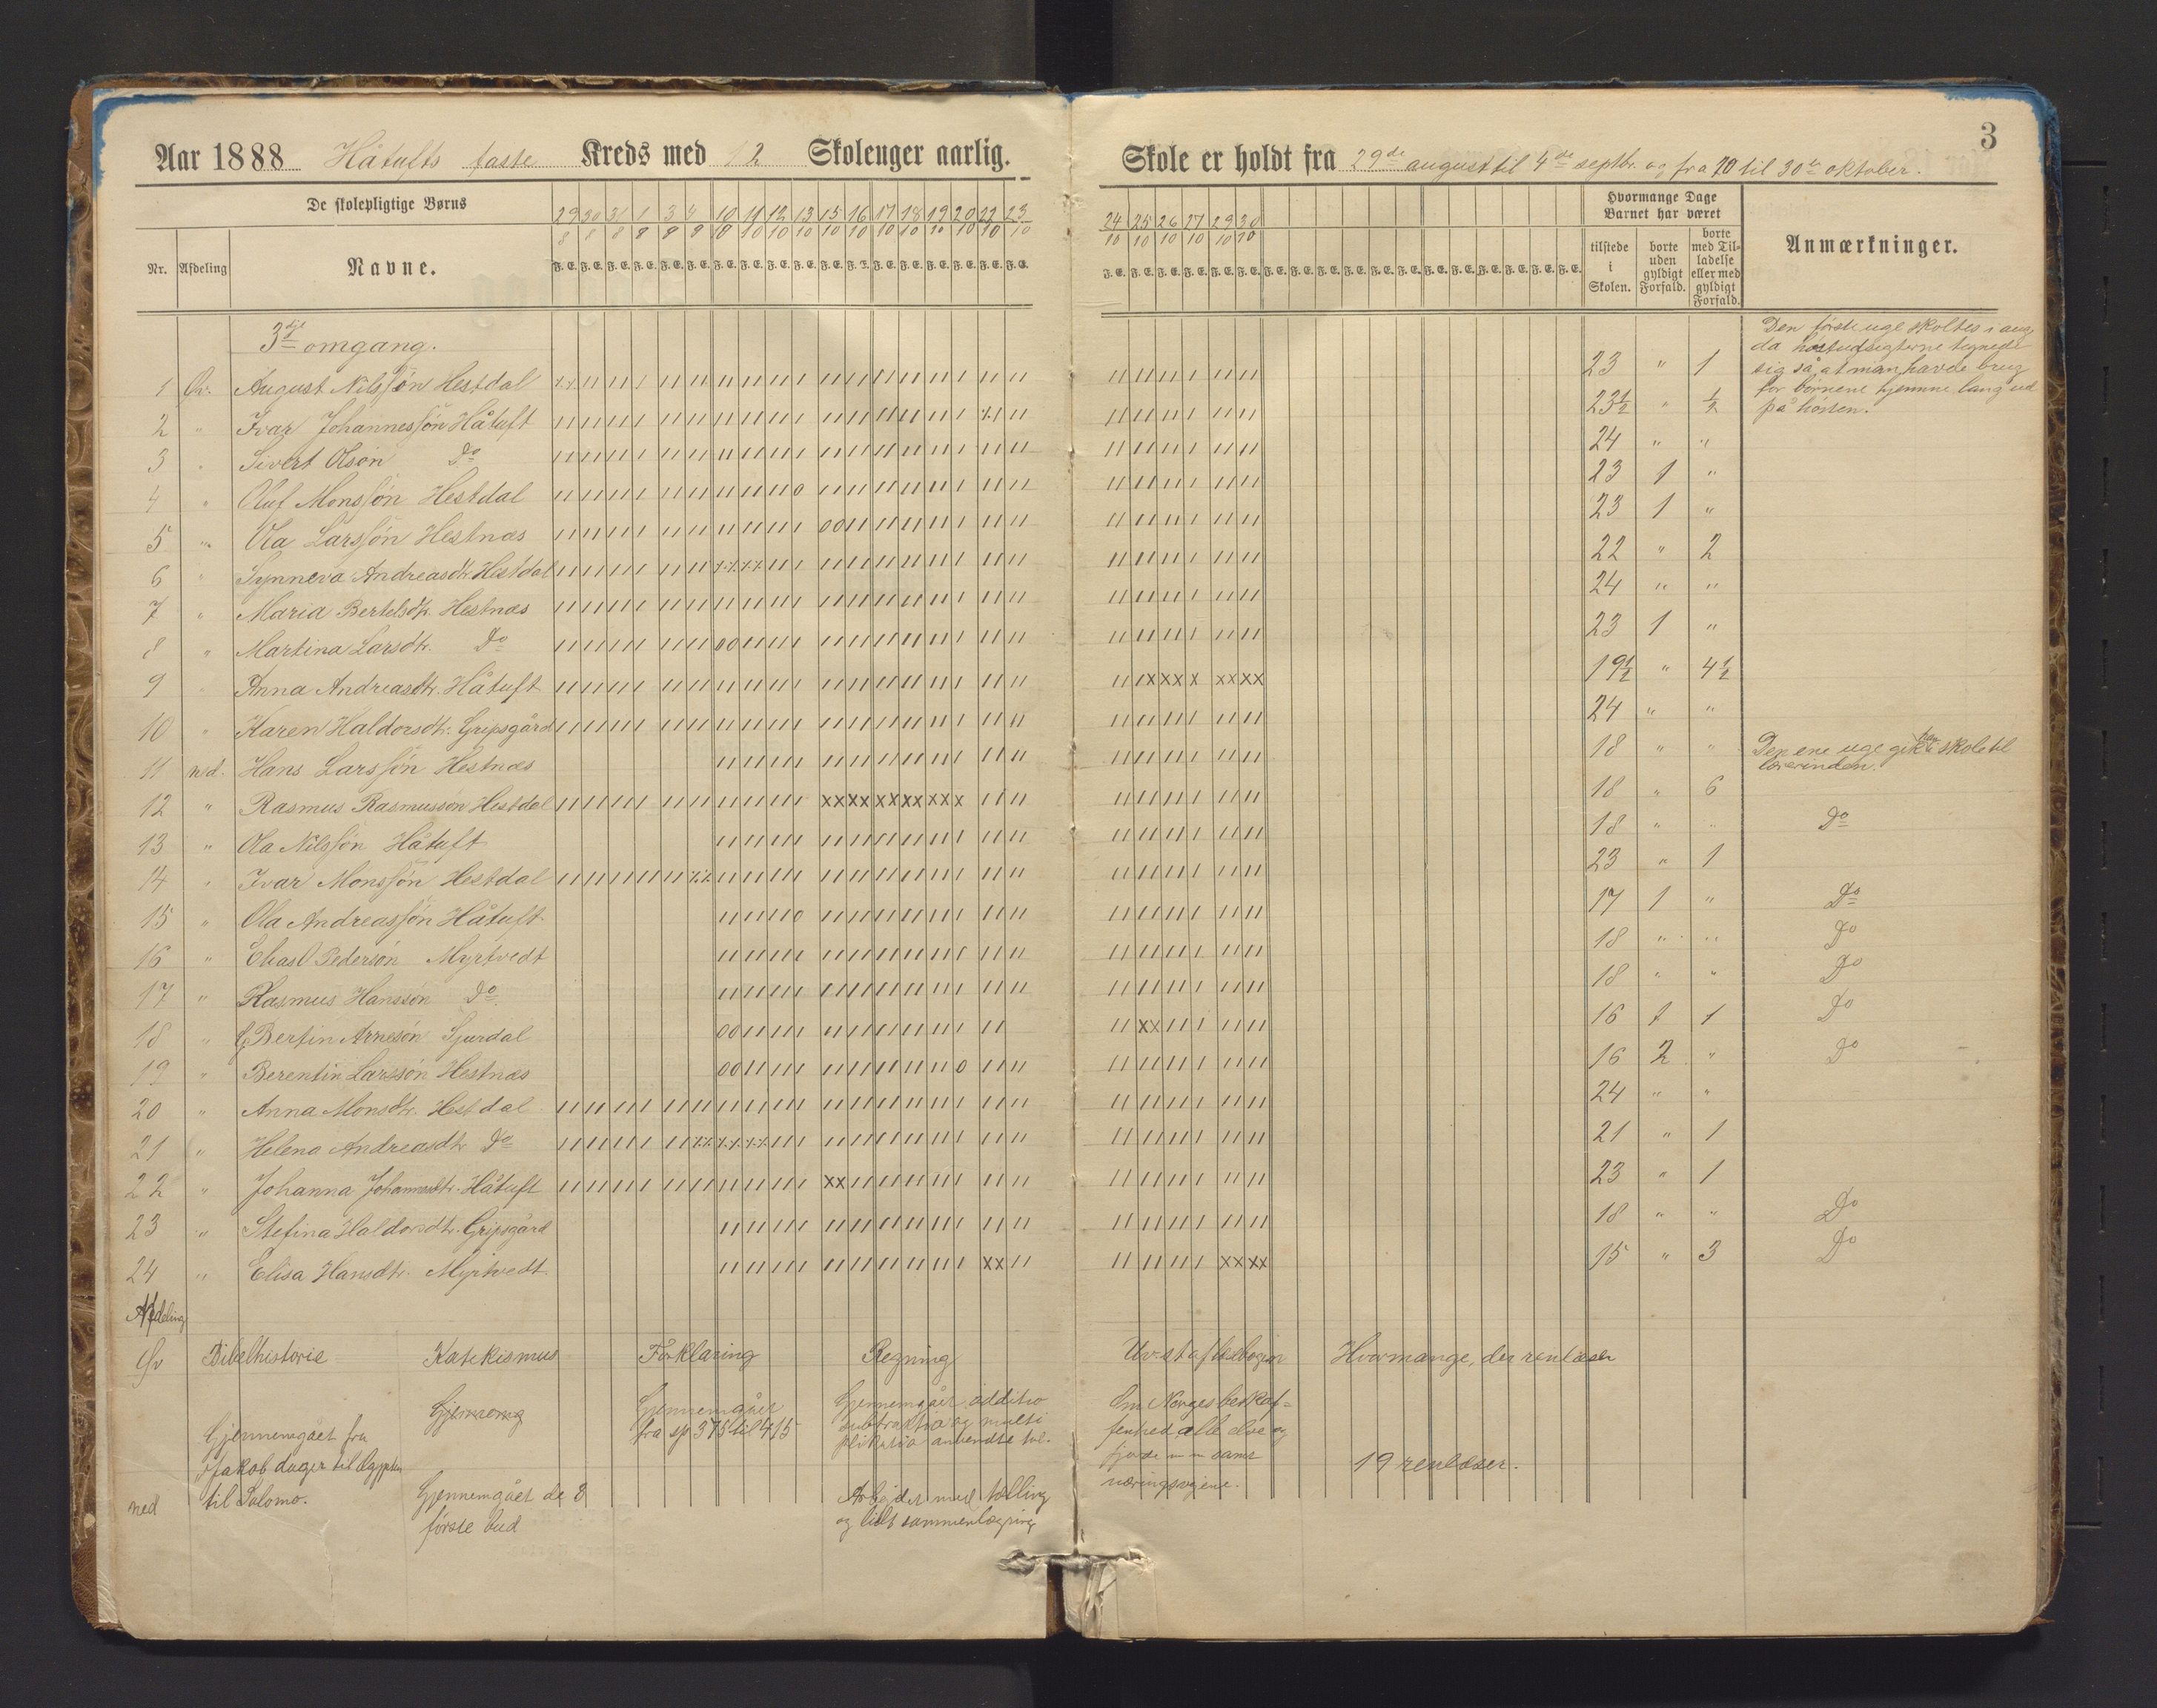 3
Aar 1888 Håtufts faste Kreds med 12 Skoleuger aarlig.
Skole er holdt fra 29de august til 4de septbr. og fra 10 til 30te oktober.
De skolepligtige Børns
Nr. Afdeling Navne.
29 30 31 1 3 4 10 11 12 13 15 16 17 18 19 20 22 23
8 8 8 8 8 9 10 10 10 10 10 10 10 10 10 10 10 10
F. E. F. E. F. E. F. E. F. E. F. E. F. E. F. E. F. E. F. E. F. E. F. E. F. E. F. E. F. E. F. E. F. E. F. E.
24 25 26 27 29 30
10 10 10 10 10 10
F. E. F. E. F. E. F. E. F. E. F. E. F. E. F. E. F. E. F. E. F. E. F. E. F. E. F. E. F. E. F. E. F. E. F. E.
Hvormange Dage Barnet har været
tilstede i Skolen.
borte uden gyldigt Forfald.
borte med Tilladelse eller med gyldigt Forfald.
Anmærkninger.
3die omgang.
Den første uge skoltes i aug.
da høstudsigterne tegnede
sig så, at man havde brug
for børnene hjemme lang ud
på høsten.
1 Øv. August Nilssøn Hestdal 23 " 1
2 " Ivar Johannessøn Håtuft 23½ " ½
3 " Sivert Olsøn Do 24 " "
4 " Oluf Monssøn Hestdal 23 1 "
5 " Ola Larssøn Hestnæs 23 1 "
6 " Synneva Andreasdtr. Hestdal 22 " 2
7 " Maria Bertelsdtr. Hestnæs 24 " "
8 " Martina Larsdtr. Do 23 1 "
9 " Anna Andreasdtr. Håtuft 19½ " 4½
10 " Karen Haldorsdtr. Gripsgård 24 " "
11 ned. Hans Larssøn Hestnæs 18 " " Den ene uge gik han skole til
lærerinden.
12 " Rasmus Rasmussøn Hestdal 18 " 6
13 " Ola Nilssøn Håtuft 18 " " Do
14 " Ivar Monssøn Hestdal 23 " 1
15 " Ola Andreassøn Håtuft 17 1 " Do
16 " Elias Pedersøn Myrtvedt 18 " " Do
17 " Rasmus Hanssøn Do 18 " " Do
18 " Bertin Arnesøn Sjurdal 16 1 1 Do
19 " Berentin Larssøn Hestnæs 16 2 " Do
20 " Anna Monsdtr. Hestdal 24 " "
21 " Helena Andreasdtr. Do 21 " 1
22 " Johanna Johannesdtr. Håtuft 23 " 1
23 " Stefina Haldorsdtr. Gripsgård 18 " " Do
24 " Elisa Hansdtr. Myrtvedt 15 " 3 Do
Afdeling
Øv Bibelhistorie Katekismus Forklaring Regning Hvormange, der renlæser
Gjennemgået fra
Jakob dager til Ægypten
til Salomo.
Gjennemgåer
fra sp 375 til 415
Gjennemgåer additio
subtraktio og multi
plikatio anvendte tal.
Om Norges beskaf-
fenhed, alle elve og
næringsveiene.
19 renlæser.
ned
Gjennemgået de 8
første bud
Arbeidet med tælling
og lidt sammenlægning